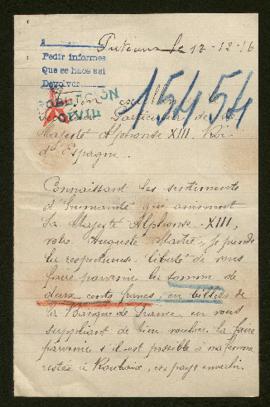 A
Puteaux le 12-12-16
Pedir informes
Que se hace así
Devolver
15454
POBLACIÓN
CIVIL
Secrétaire particulier de sa
Majesté Alphonse XIII, Roi
d'Espagne.
Connaissant les sentiments
d'humanité que animent
Sa Majesté Alphonse XIII,
votre Auguste Maître, je prends
la respectueuse liberté de vous
faire parvenir la somme de
deux cents francs, en billets de
la Banque de France en vous
suppliant de bien vouloir la faire
parvenir s'il est possible à ma femme
restée à Roubaix, en pays envahi.